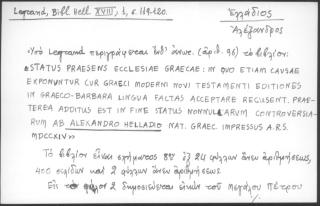 Legrand, Bibl. Hell. XVIII, 1, σ. 119-120.
Ἑλλάδιος
Ἀλέξανδρος
Ὑπὸ Legrand περιγράφεται ἐνθ' ἄνω. (ἀρ. 96) τὸ βιβλίον:
«STATUS PRAESENS ECCLESIAE GRAECAE: IN QUO ETIAM CAUSAE
EXPONUNTUR CUR GRAECI MODERNI NOVI TESTAMENTI EDITIONES
IN GRAECO-BARBARA LINGUA FALTAS ACCEPTARE RECUSENT. PRAE-
TEREA ADDITUS EST IN FINE STATUS NONNULLARUM CONTROVERSIA-
RUM AB ALEXANDRO HELLADIO NAT. GRAEC. IMPRESSUS A.R.S.
MDCCXIV»
Τὸ βιβλίον εἶναι σχήματος 8ον ἐξ 24 φύλλων ἄνευ ἀριθμήσεως,
400 σελίδων καὶ 2 φύλλων ἄνευ ἀριθμήσεως.
Εἰς τὸ φύλλον 2 δημοσιεύεται εἰκὼν τοῦ Μεγάλου Πέτρου